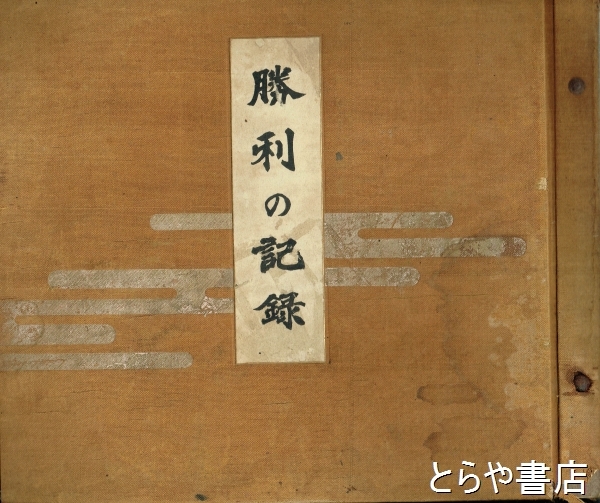 勝利の記録
とらや書店